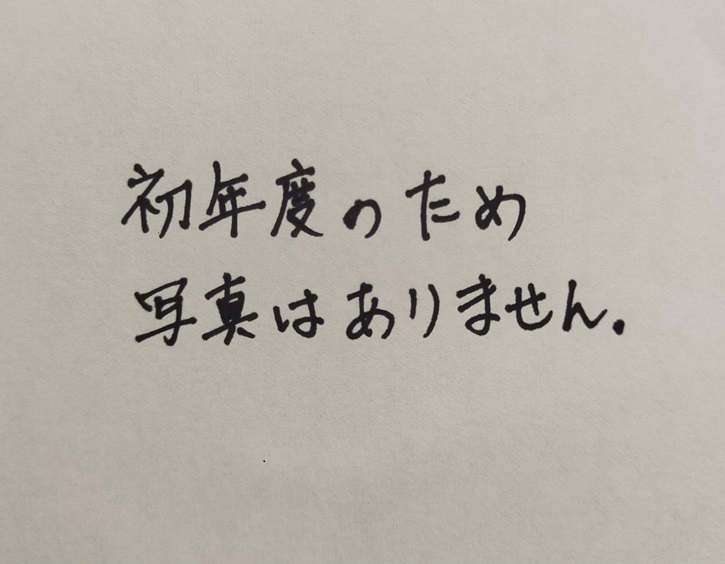 初年度のため
写真はありません.